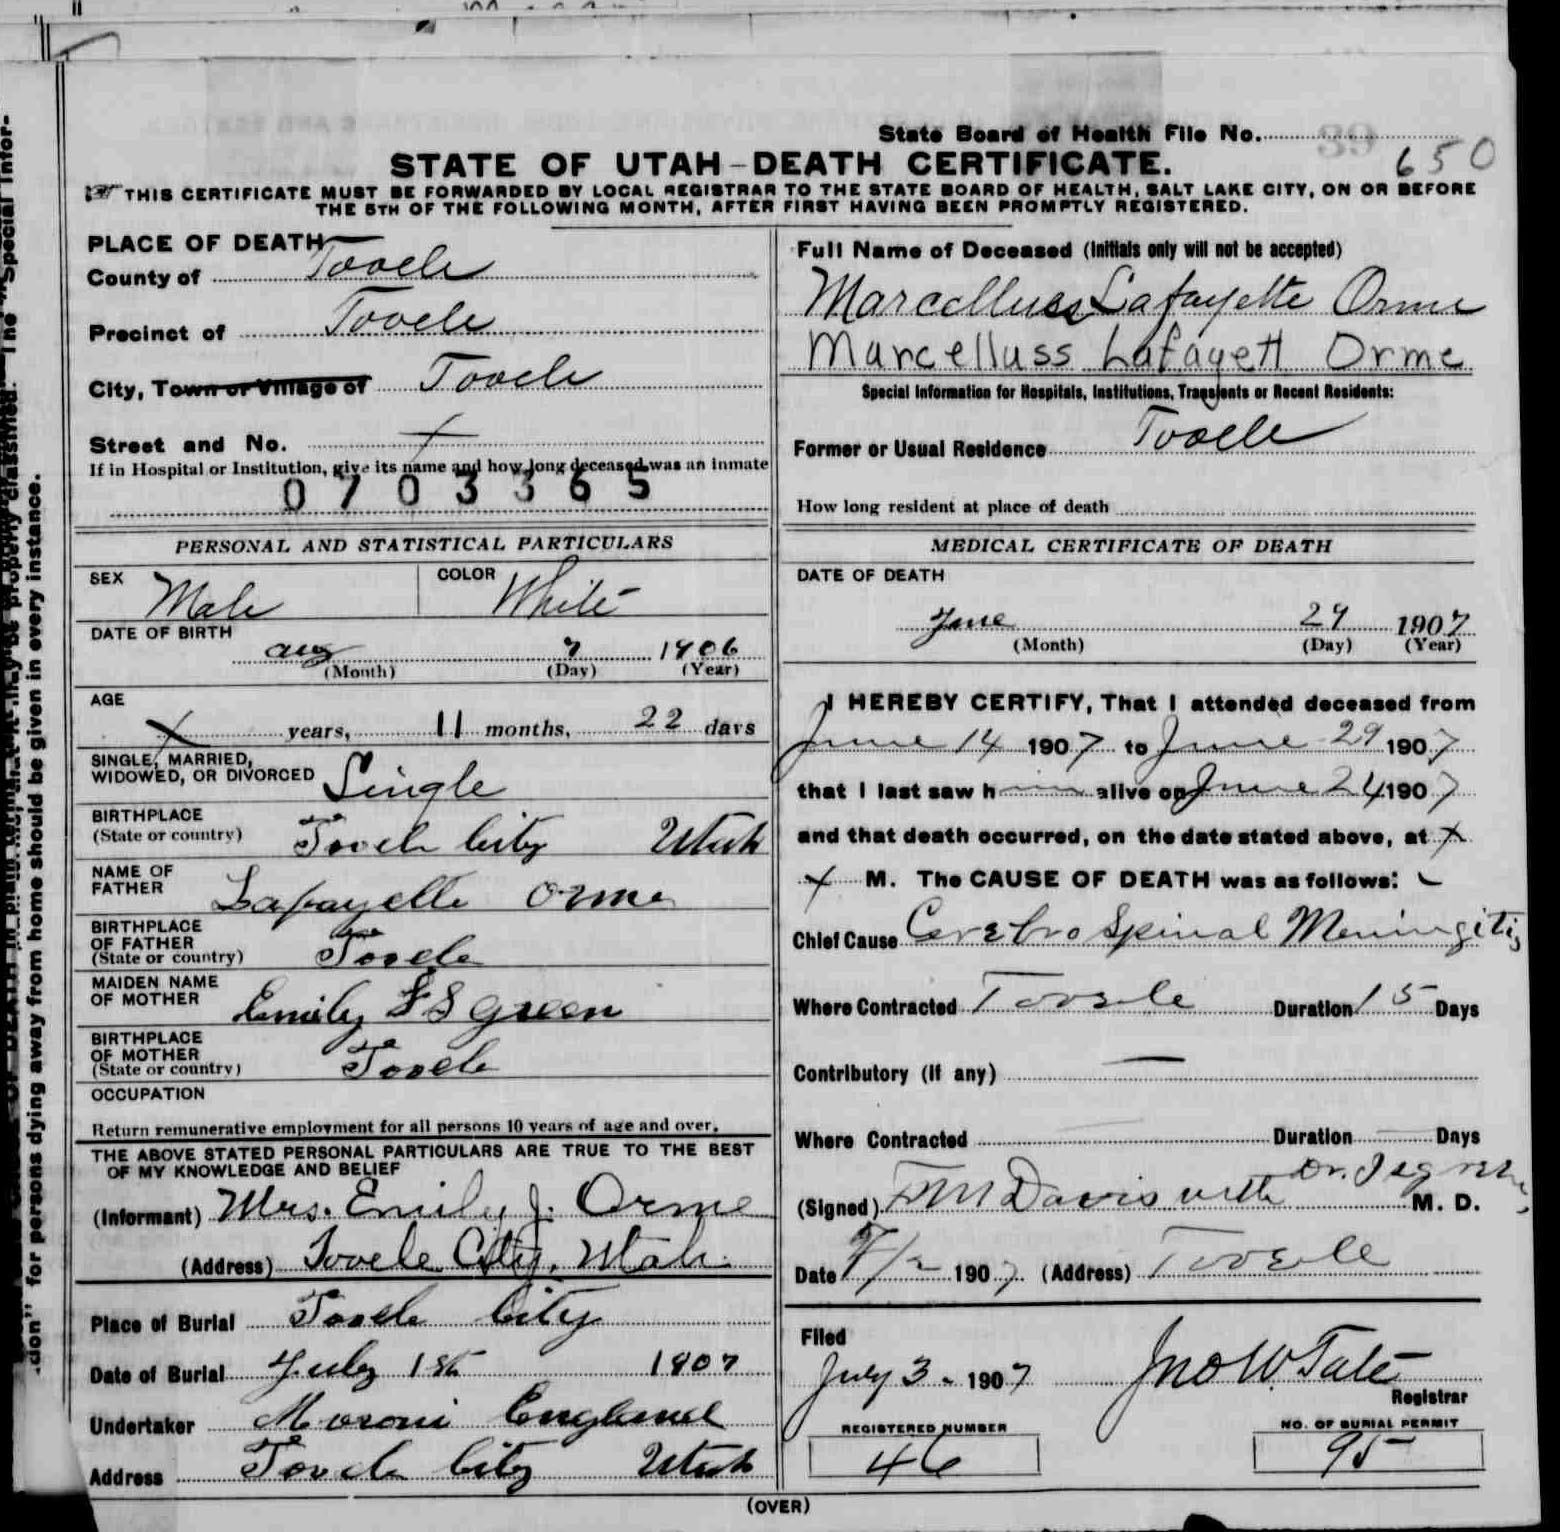 State Board of Health File No. 650
STATE OF UTAH-DEATH CERTIFICATE.
THIS CERTIFICATE MUST BE FORWARDED BY LOCAL REGISTRAR TO THE STATE BOARD OF HEALTH, SALT LAKE CITY, ON OR BEFORE
THE 5TH OF THE FOLLOWING MONTH, AFTER FIRST HAVING BEEN PROMPTLY REGISTERED.
PLACE OF DEATH
County of Tooele
Precinct of Tooele
City, Town or Village of Tooele
Street and No. X
If in Hospital or Institution, give its name and how long deceased was an inmate
0703365
PERSONAL AND STATISTICAL PARTICULARS
SEX Male COLOR White
DATE OF BIRTH
Aug 7 1906
(Month) (Day) (Year)
AGE
X years, 11 months, 22 days
SINGLE, MARRIED,
WIDOWED, OR DIVORCED Single
BIRTHPLACE
(State or country) Tooele City Utah
NAME OF
FATHER Lafayette Orme
BIRTHPLACE
OF FATHER
(State or country) Tooele
MAIDEN NAME
OF MOTHER Emily Green
BIRTHPLACE
OF MOTHER
(State or country) Tooele
OCCUPATION
Return remunerative employment for all persons 10 years of age and over.
THE ABOVE STATED PERSONAL PARTICULARS ARE TRUE TO THE BEST
OF MY KNOWLEDGE AND BELIEF
(Informant) Mrs. Emily J. Orme
(Address) Tooele City, Utah.
Place of Burial Tooele City
Date of Burial July 1st 1907
Undertaker Moroni England
Address Tooele City Utah
Full Name of Deceased (Initials only will not be accepted)
Marcelluss Lafayette Orme
Marcelluss Lafayett Orme
Special Information for Hospitals, Institutions, Transients or Recent Residents:
Former or Usual Residence Tooele
How long resident at place of death
MEDICAL CERTIFICATE OF DEATH
DATE OF DEATH
June 29 1907
(Month) (Day) (Year)
I HEREBY CERTIFY, That I attended deceased from
June 14 1907 to June 29 1907
that I last saw him alive on June 24 1907
and that death occurred, on the date stated above, at X
X M. The CAUSE OF DEATH was as follows:
Chief Cause Cerebro Spinal Meningitis
Where Contracted Tooele Duration 15 Days
Contributory (if any) —
Where Contracted Duration Days
(Signed) F M Davis with Dr. M. D.
Date 7/2 1907. (Address) Tooele
Filed
July 3 - 1907 Jno W. Tate
Registrar
REGISTERED NUMBER
46
NO. OF BURIAL PERMIT
95
(OVER)
don" for persons dying away from home should be given in every instance.